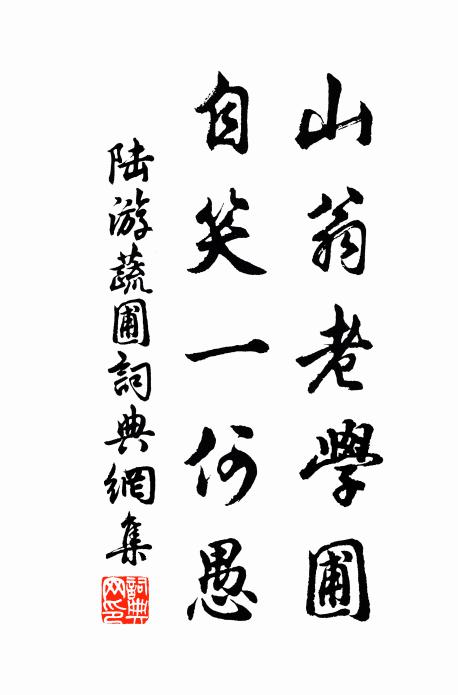 山翁老學圃
自笑一何愚
陸游蔬圃詞典網集
詞典網印